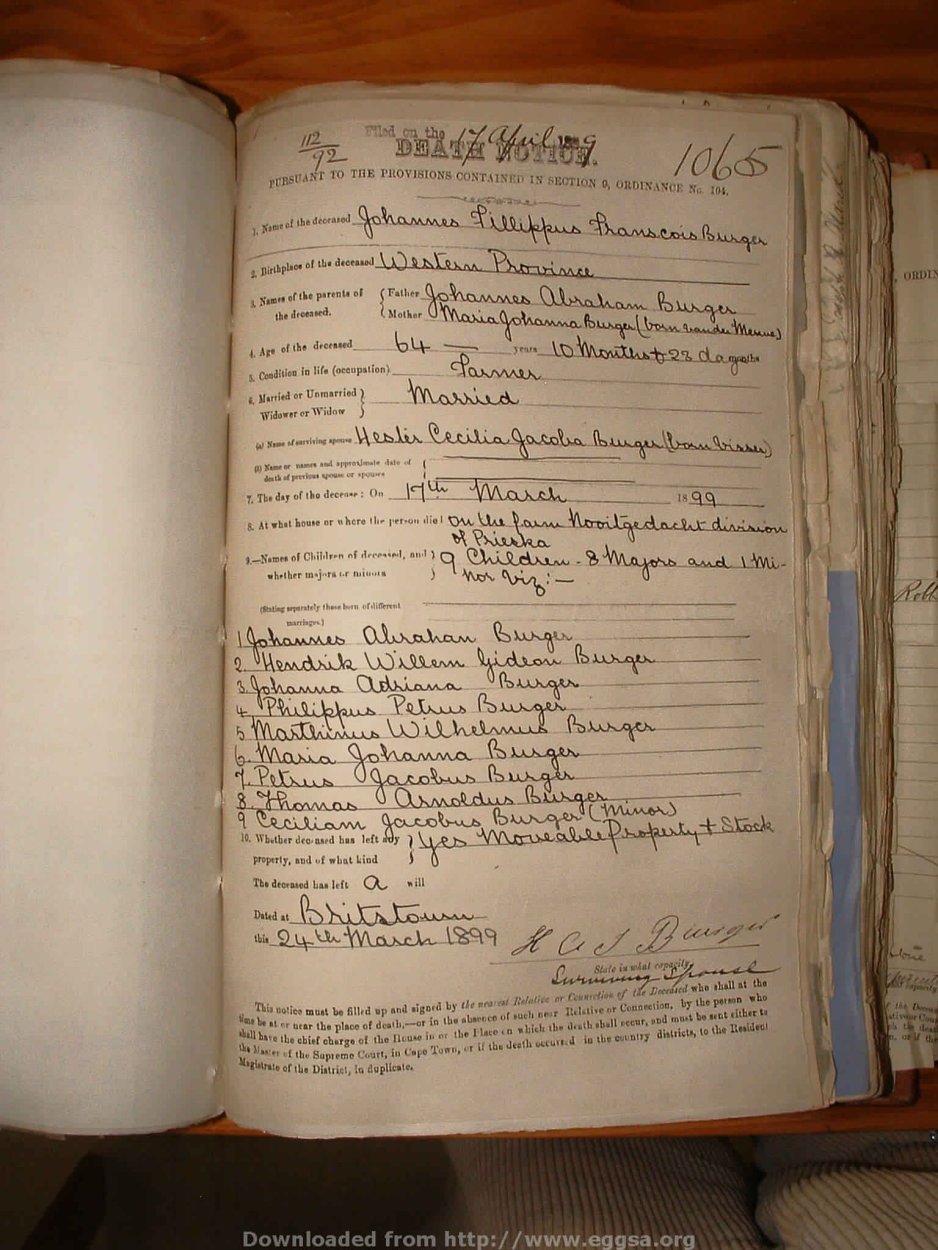 112/92
Filed on the 17 April 1899
DEATH NOTICE.
1065
PURSUANT TO THE PROVISIONS CONTAINED IN SECTION 9, ORDINANCE No. 104.
1. Name of the deceased Johannes Fillippus Franscois Burger
2. Birthplace of the deceased Western Province
3. Names of the parents of the deceased. { Father Johannes Abraham Burger
Mother Maria Johanna Burger (born van der Merwe)
4. Age of the deceased 64 — years 10 Months + 23 da months
5. Condition in life (occupation) Farmer
6. Married or Unmarried } Married
Widower or Widow
(a) Name of surviving spouse Hester Cecilia Jacoba Burger (born Visser)
(b) Name or names and approximate date of
death of previous spouse or spouses
7. The day of the decease: On 17th March 1899
8. At what house or where the person died on the farm Nooitgedacht division
of Prieska
9.—Names of Children of deceased, and } 9 Children - 8 Majors and 1 Mi-
whether majors or minors nor viz:—
(Stating separately those born of different
marriages.)
1 Johannes Abrahan Burger
2. Hendrik Willem Gideon Burger
3. Johanna Adriana Burger
4 Philippus Petrus Burger
5 Marthinus Wilhelmus Burger
6. Maria Johanna Burger
7. Petrus Jacobus Burger
8. Thomas Arnoldus Burger
9 Ceciliam Jacobus Burger (Minor)
10. Whether deceased has left any } Yes Moveable Property + Stock
property, and of what kind
The deceased has left A will
Dated at Britstown
this 24th March 1899
H C J Burger
State in what capacity
Surviving Spouse
This notice must be filled up and signed by the nearest Relative or Connection of the Deceased who shall at the
time be at or near the place of death,—or in the absence of such near Relative or Connection, by the person who
shall have the chief charge of the House in or the Place on which the death shall occur, and must be sent either to
the Master of the Supreme Court, in Cape Town, or if the death occurred in the country districts, to the Resident
Magistrate of the District, in duplicate.
ORDIN
Robb
Downloaded from http://www.eggsa.org